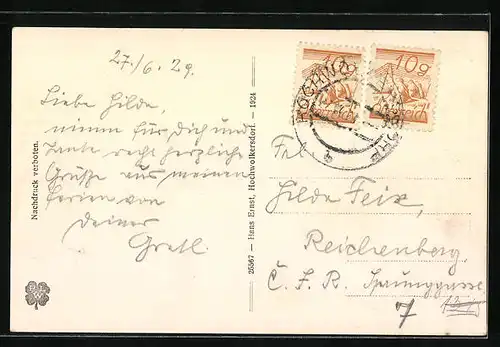 27./6. 29.
Liebe Hilde,
nimm für Dich und
Tante recht herzliche
Grüße aus meinen
Ferien von
deiner
Gretl.
Nachdruck verboten.
25567 — Hans Ernst, Hochwolkersdorf. — 1924
10g
10g
Frl.
Hilde Feix,
Reichenberg
Č. S. R. Sprunggasse
7